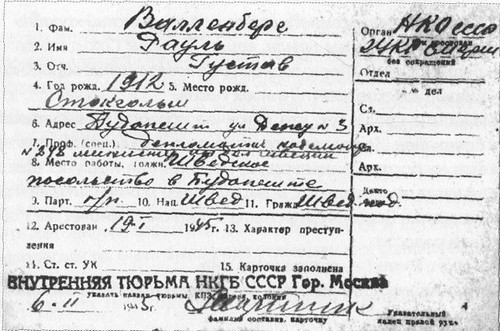 1. Фам. Валленберг
2. Имя Рауль
3. Отч. Густав
4. Год рожд. 1912 5. Место рожд.
Стокгольм
6. Адрес Будапешт ул
7. Проф. (спец.)
8. Место работы, должн. Шведское
посольство в Будапеште
9. Парт. б/п. 10. Нац. Швед 11. Гражд. Швед под.
12. Арестован 19-I 1945 г. 13. Характер преступ-
ления
14. Ст. ст. УК 15. Карточка заполнена
ВНУТРЕННЯЯ ТЮРЬМА НКГБ СССР Гор. Москва
указать назван. тюрьмы, КПЗ, колонии
6-II 1945 г.
фамилия составив. карточку
Орган НКО ссср
без сокращений
Отдел
№ дел
Сл.
Арх.
Стр.
Арк.
Дакто
4
Указательный
палец правой руки